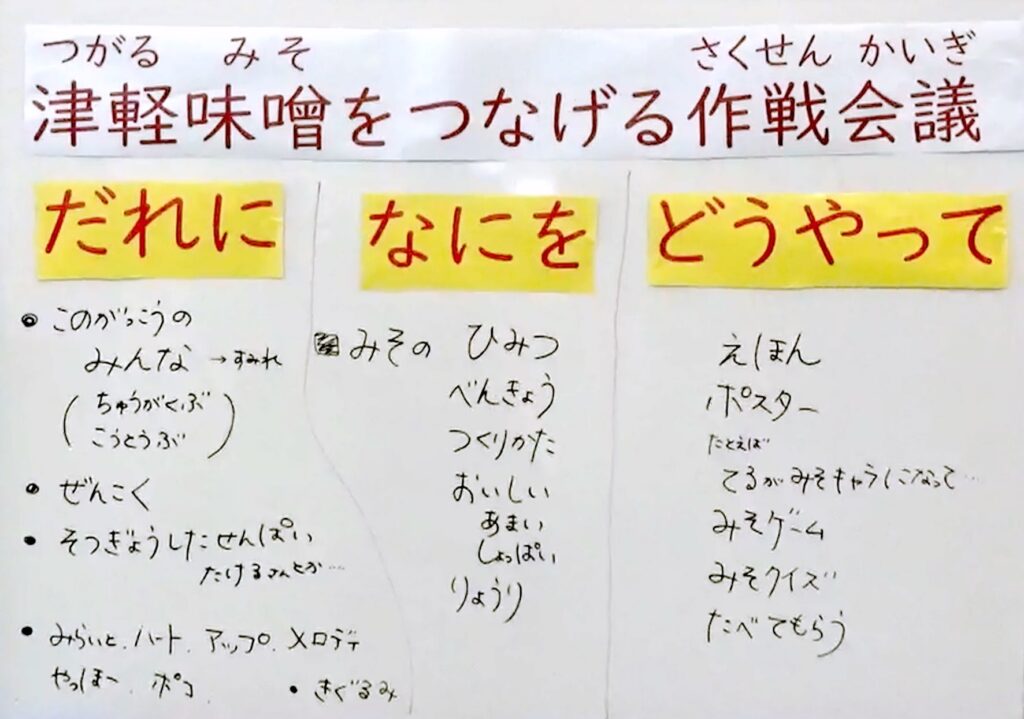 つがる みそ さくせん かいぎ
津軽味噌をつなげる作戦会議
だれに
このがっこうの
みんな→すみれ
(ちゅうがくぶ
こうとうぶ)
ぜんこく
そつぎょうしたせんぱい
たけるさんとか…
みらいと、ハート、アップ、メロディ
やっほー、ポコ
・きぐるみ
なにを
みその ひみつ
べんきょう
つくりかた
おいしい
あまい
しょっぱい
りょうり
どうやって
えほん
ポスター
たとえば
てるがみそキャラになって…
みそゲーム
みそクイズ
たべてもらう